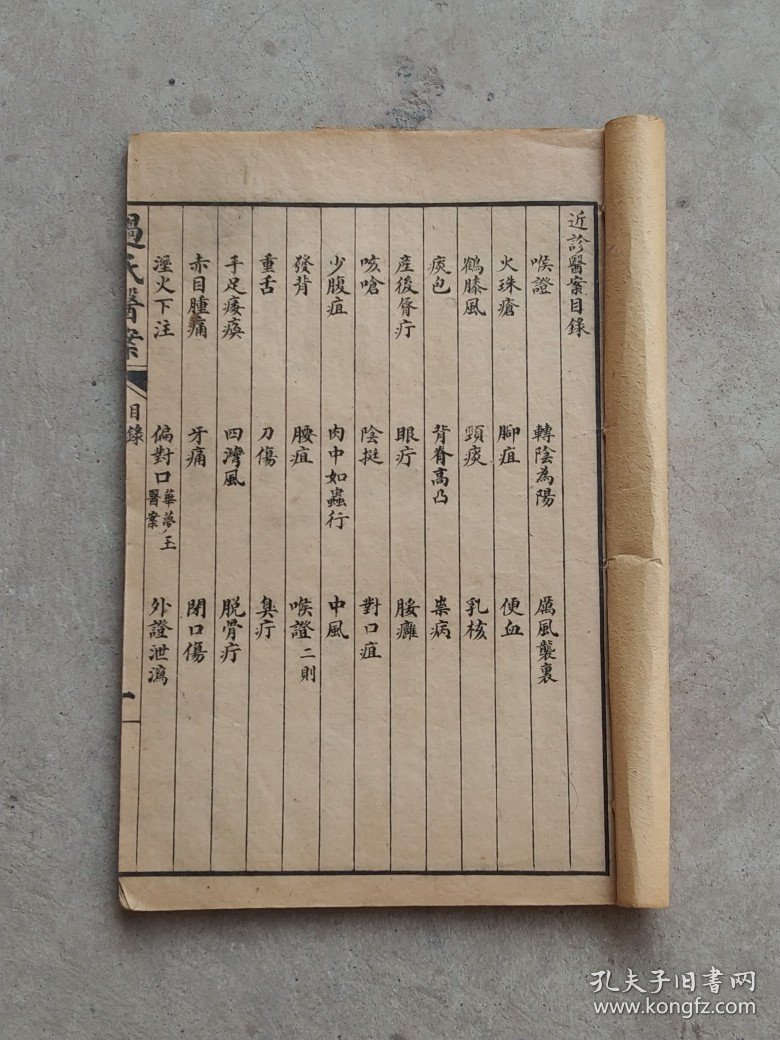 近診醫案目錄
喉證 轉陰為陽 厲風襲裏
火珠瘡 腳疽 便血
鶴膝風 頸痰 乳核
痰包 背脊高凸 祟病
產後脣疔 眼疔 腰癰
咳嗆 陰挺 對口疽
少腹疽 肉中如蟲行 中風
發背 腰疽 喉證二則
重舌 刀傷 鼻疔
手足痿瘓 四灣風 脫骨疔
赤目腫痛 牙痛 閉口傷
溼火下注 偏對口華夢玉醫案 外證泄瀉
過氏醫案 目錄 一
孔夫子旧书网
www.kongfz.com